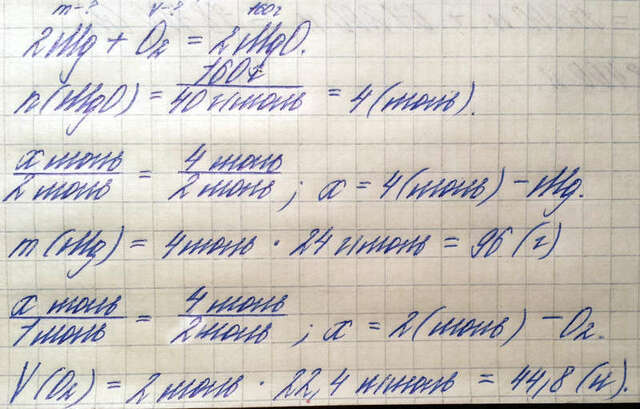 m-? V-? 160г
2Mg + O₂ = 2MgO.
n(MgO) = 160г / 40 г/моль = 4 (моль).
x моль / 2 моль = 4 моль / 2 моль ; x = 4 (моль) - Mg.
m(Mg) = 4 моль · 24 г/моль = 96 (г)
x моль / 1 моль = 4 моль / 2 моль ; x = 2 (моль) - O₂.
V(O₂) = 2 моль · 22,4 л/моль = 44,8 (л).